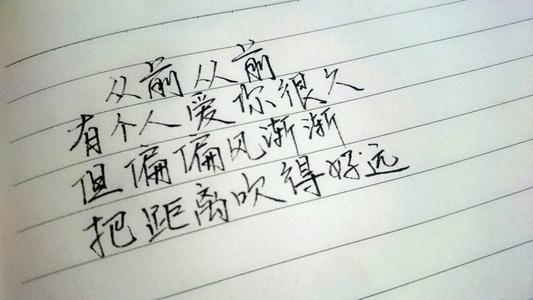 从前从前
有个人爱你很久
但偏偏风渐渐
把距离吹得好远